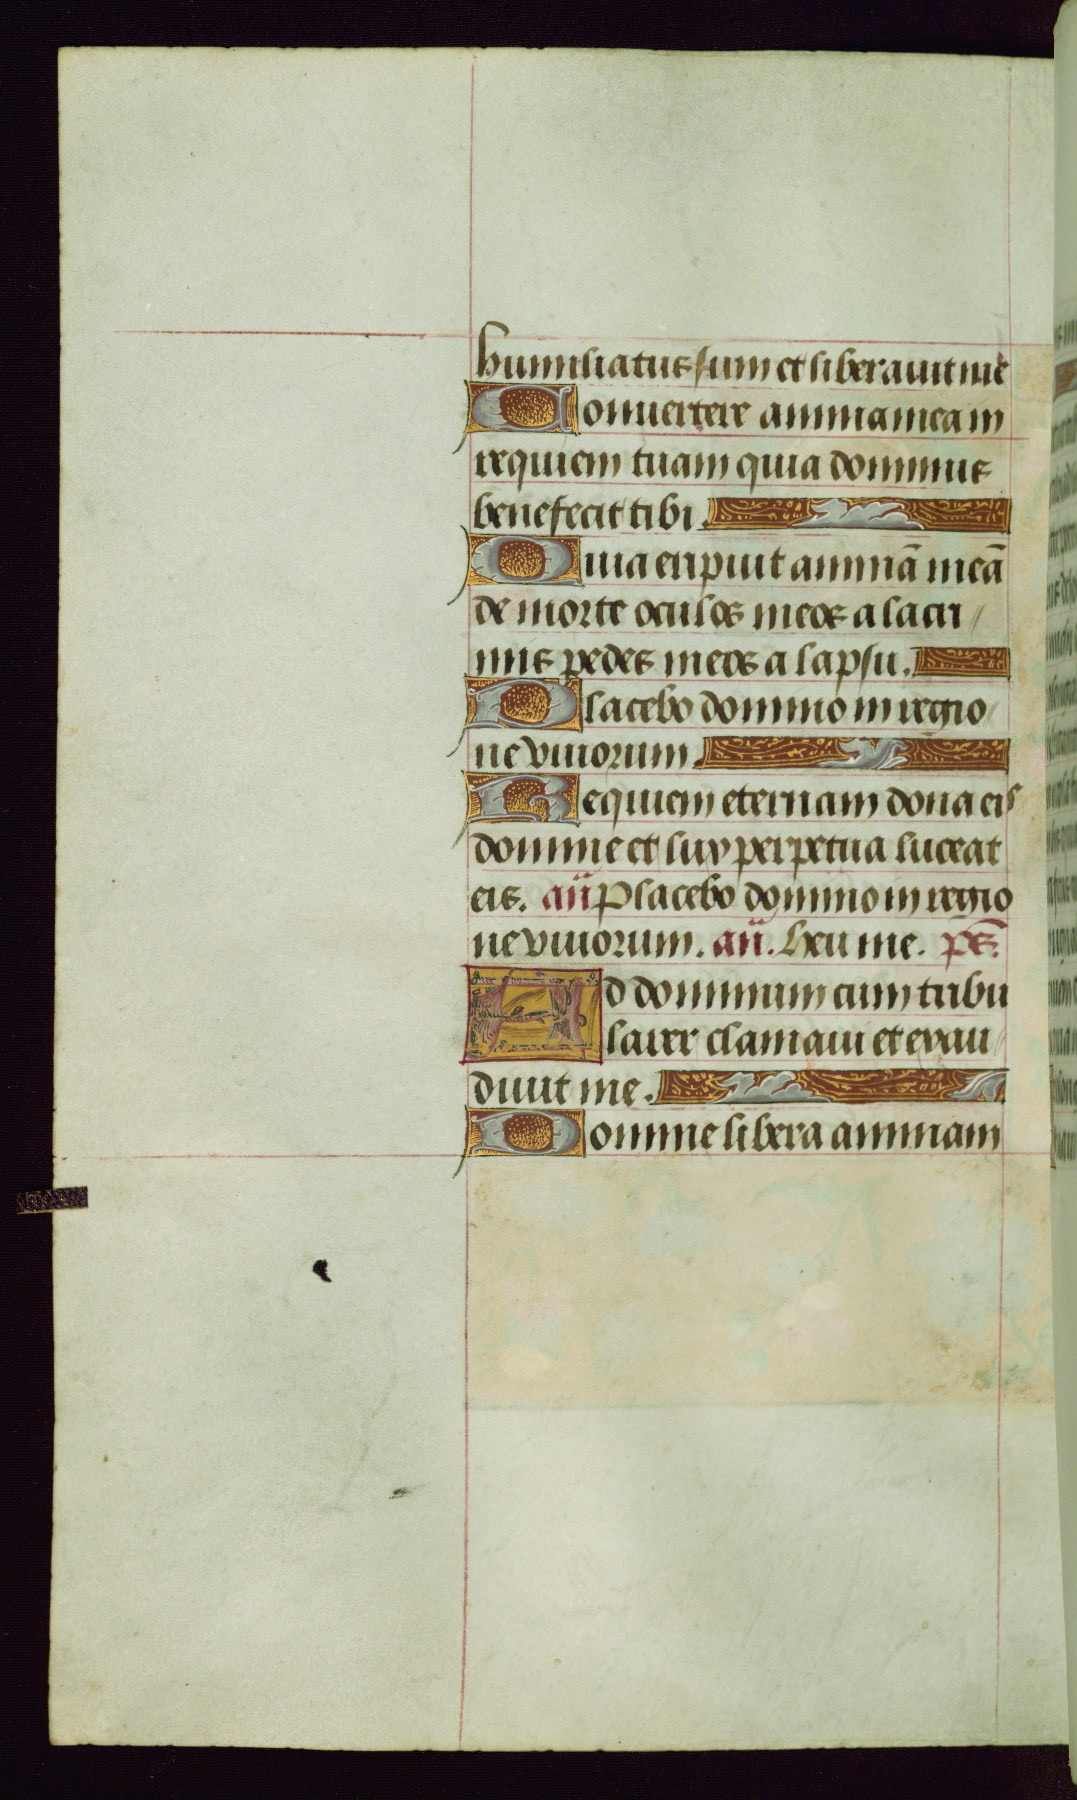 humiliatus sum et liberauit me
Conuertere anima mea in
requiem tuam quia dominus
benefecit tibi.
Quia eripuit animā meā
de morte oculos meos a lacri
mis pedes meos a lapsu.
Placebo domino in regio
ne viuorum.
Requiem eternam dona eis
domine et lux perpetua luceat
eis. añ Placebo domino in regio
ne viuorum. añ. Heu me. ps̄.
Ad dominum cum tribu
larer clamaui et exau
diuit me.
Domine libera animam